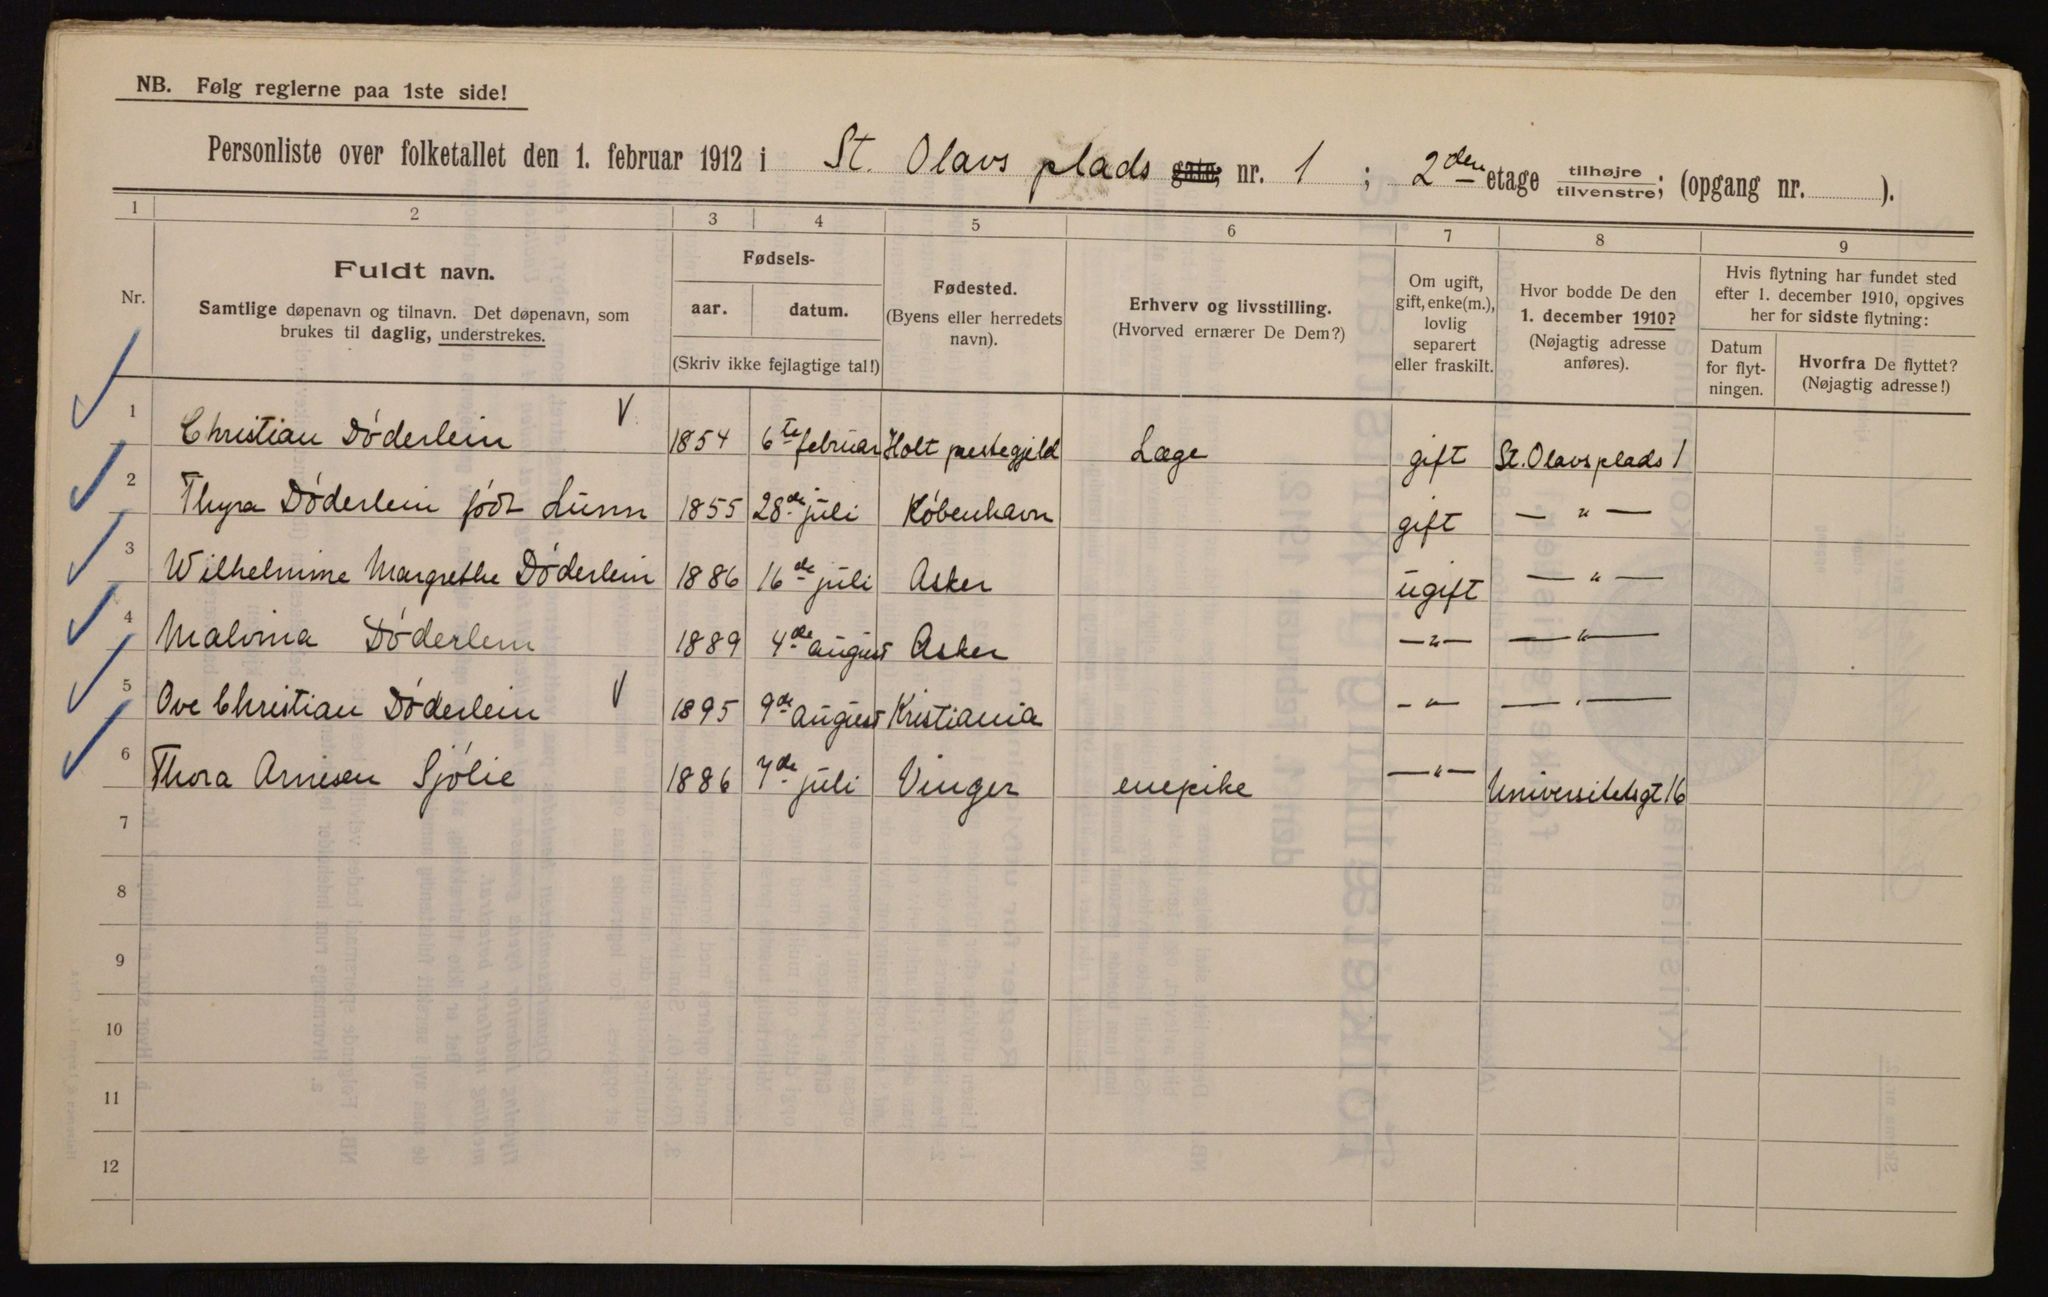 NB. Følg reglerne paa 1ste side!
Personliste over folketallet den 1. februar 1912 i St. Olavs plads gate, nr. 1 ; 2den etage tilhøjre tilvenstre; (opgang nr. ).
1 2 3 4 5 6 7 8 9
Nr.
Fuldt navn.
Samtlige døpenavn og tilnavn. Det døpenavn, som
brukes til daglig, understrekes.
Fødsels-
aar. datum.
(Skriv ikke fejlagtige tal!)
Fødested.
(Byens eller herredets
navn).
Erhverv og livsstilling.
(Hvorved ernærer De Dem?)
Om ugift,
gift, enke(m.),
lovlig
separert
eller fraskilt.
Hvor bodde De den
1. december 1910?
(Nøjagtig adresse
anføres).
Hvis flytning har fundet sted
efter 1. december 1910, opgives
her for sidste flytning:
Datum
for flyt-
ningen.
Hvorfra De flyttet?
(Nøjagtig adresse!)
1 Christian Döderlein V 1854 6te februar Holt prestegjeld Læge gift St. Olavs plads 1
2 Thyra Döderlein född Lunn 1855 28de juli København gift — " —
3 Wilhelmine Margrethe Döderlein 1886 16de juli Asker ugift — " —
4 Malvina Döderlein 1889 4de august Asker — " — — " —
5 Ove Christian Döderlein V 1895 9de august Kristiania — " — — " —
6 Thora Arnesen Sjölie 1886 7de juli Vinger enepike — " — Universitetsgt 16
7
8
9
10
11
12